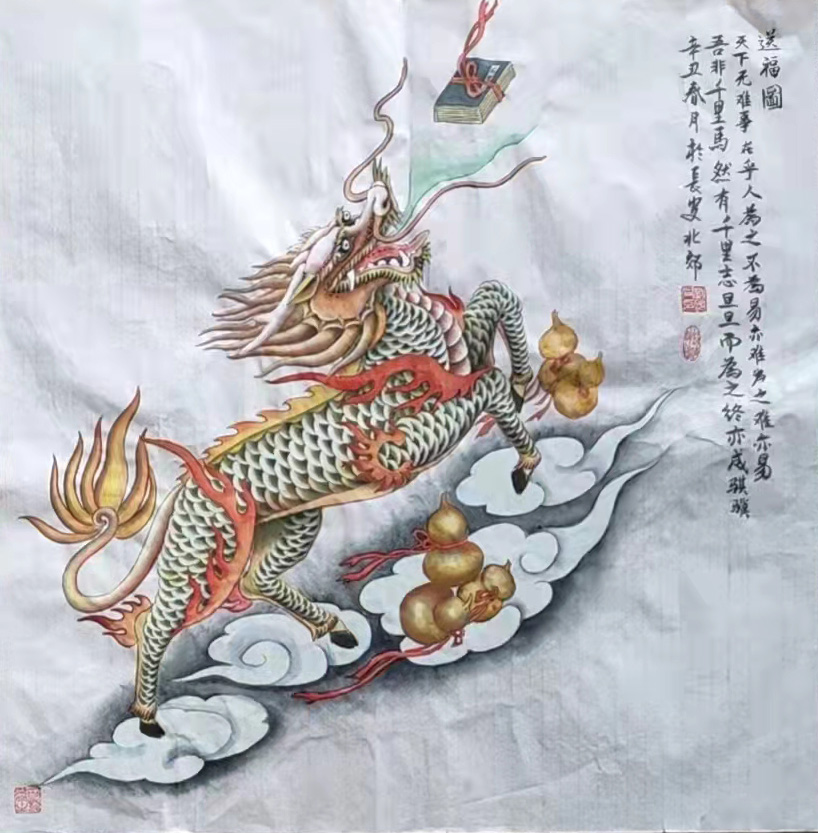 送福圖
天下无难事在乎人為之不為易亦难为之难亦易
吾非千里馬然有千里志旦旦而為之终亦成骐骥
辛丑春月於長安北郊